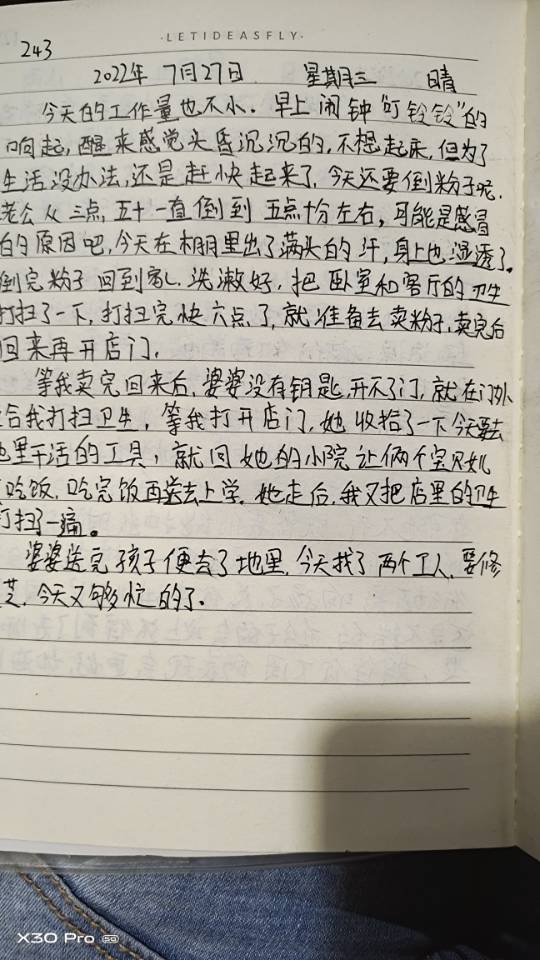 ·LETIDEASFLY·
243
2022年 7月27日 星期三 晴
今天的工作量也不小. 早上闹钟"叮铃铃"的
响起, 醒来感觉头昏沉沉的, 不想起床, 但为了
生活没办法, 还是赶快起来了, 今天还要倒粉子呢.
老公从三点五十一直倒到五点十分左右, 可能是感冒
的原因吧, 今天在棚里出了满头的汗, 身上也湿透了.
倒完粉子回到家, 洗漱好, 把卧室和客厅的卫生
打扫了一下, 打扫完快六点了, 就准备去卖粉子, 卖完后
回来再开店门.
等我卖完回来后, 婆婆没有钥匙, 开不了门, 就在门外
给我打扫卫生, 等我打开店门, 她收拾了一下今天要去
地里干活的工具, 就回她的小院让俩个宝贝儿
吃饭, 吃完饭再送去上学. 她走后, 我又把店里的卫生
打扫了一遍。
婆婆送完孩子便去了地里, 今天找了两个工人, 要修
芝, 今天又够忙的了.
X30 Pro 5G